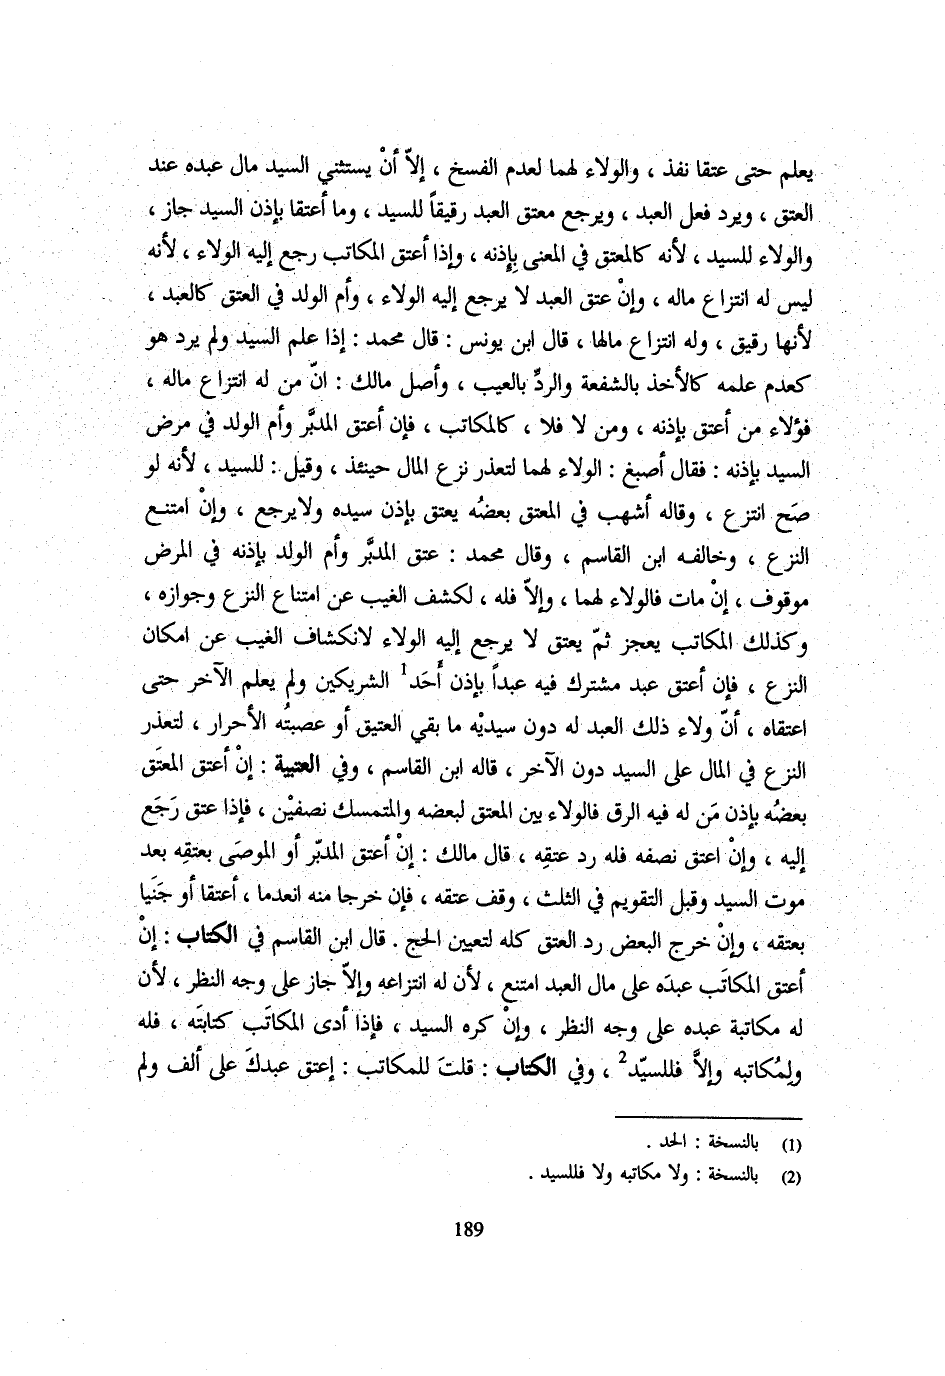 يعلم حتى عتقا نفذ ، والولاء لهما لعدم الفسخ ، إلاّ أنْ يستثني السيد مال عبده عند
العتق ، ويرد فعل العبد ، ويرجع معتق العبد رقيقاً للسيد ، وما أعتقا بإذن السيد جاز ،
والولاء للسيد ، لأنه كالمعتق في المعنى بإذنه ، وإذا أعتق المكاتب رجع إليه الولاء ، لأنه
ليس له انتزاع ماله ، وإنْ عتق العبد لا يرجع إليه الولاء ، وأم الولد في العتق كالعبد ،
لأنها رقيق ، وله انتزاع مالها ، قال ابن يونس : قال محمد : إذا علم السيد ولم يرد هو
كعدم علمه كالأخذ بالشفعة والردِّ بالعيب ، وأصل مالك : انّ من له انتزاع ماله ،
فؤلاء من أعتق بإذنه ، ومن لا فلا ، كالمكاتب ، فإن أعتق المدبَّر وأم الولد في مرض
السيد بإذنه : فقال أصبغ : الولاء لهما لتعذر نزع المال حينئذ ، وقيل : للسيد ، لأنه لو
صَح انتزع ، وقاله أشهب في المعتق بعضُه يعتق بإذن سيده ولايرجع ، وإنْ امتنع
النزع ، وخالفه ابن القاسم ، وقال محمد : عتق المدبَّر وأم الولد بإذنه في المرض
موقوف ، إنْ مات فالولاء لهما ، وإلاّ فله ، لكشف الغيب عن امتناع النزع وجوازه ،
وكذلك المكاتب يعجز ثمّ يعتق لا يرجع إليه الولاء لانكشاف الغيب عن امكان
النزع ، فإن أعتق عبد مشترك فيه عبداً بإذن أَحَد1 الشريكين ولم يعلم الآخر حتى
اعتقاه ، أنّ ولاء ذلك العبد له دون سيديْه ما بقي العتيق أو عصبتُه الأحرار ، لتعذر
النزع في المال على السيد دون الآخر ، قاله ابن القاسم ، وفي العتبية : إنْ أعتق المعتَق
بعضُه بإذن مَن له فيه الرق فالولاء بين المعتق لبعضه والمتمسك نصفيْن ، فإذا عتق رَجَع
إليه ، وإنْ اعتق نصفه فله رد عتقِه ، قال مالك : إنْ أعتق المدبّر أو الموصَى بعتقِه بعد
موت السيد وقبل التقويم في الثلث ، وقف عتقه ، فإن خرجا منه انعدما ، أعتقا أو جَنَيا
بعتقه ، وإنْ خرج البعض رد العتق كله لتعيين الحج . قال ابن القاسم في الكتاب : إنْ
أعتق المكاتَب عبدَه على مال العبد امتنع ، لأن له انتزاعه وإلاّ جاز على وجه النظر ، لأن
له مكاتبة عبده على وجه النظر ، وإنْ كره السيد ، فإذا أدى المكاتَب كتابتَه ، فله
ولِمُكاتبه وإلاَّ فللسيّد2 ، وفي الكتاب : قلتَ للمكاتب : إعتق عبدكَ على ألف ولم
(1) بالنسخة : الحد .
(2) بالنسخة : ولا مكاتبه ولا فللسيد .
189